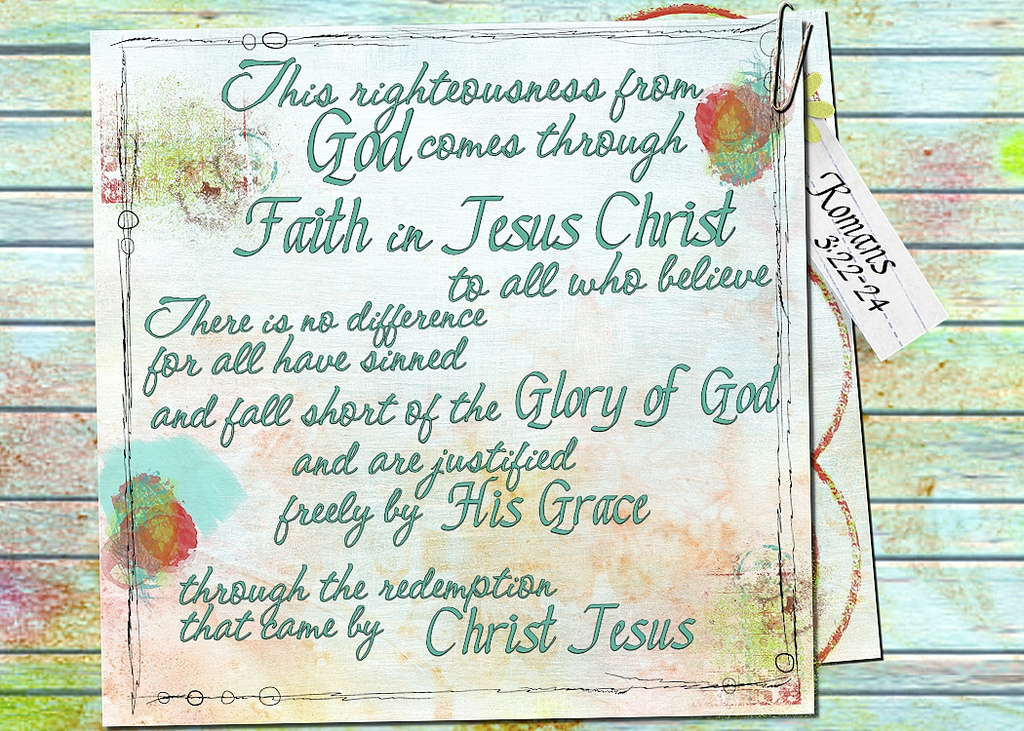 This righteousness from
God comes through
Faith in Jesus Christ
to all who believe
There is no difference
for all have sinned
and fall short of the Glory of God
and are justified
freely by His Grace
through the redemption
that came by Christ Jesus
Romans
3:22-24